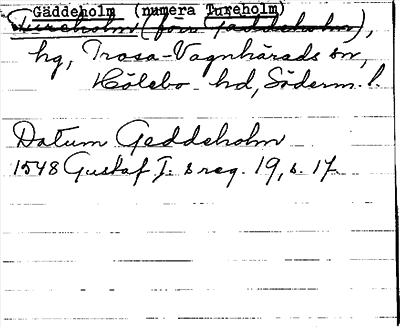 Gäddeholm (numera Tureholm)
Tureholm (förr Gäddeholm),
hg, Trosa-Vagnhärads sn,
Hölebo hd, Söderm. l.
Datum Geddeholm
1548 Gustaf I:s reg. 19, s. 17